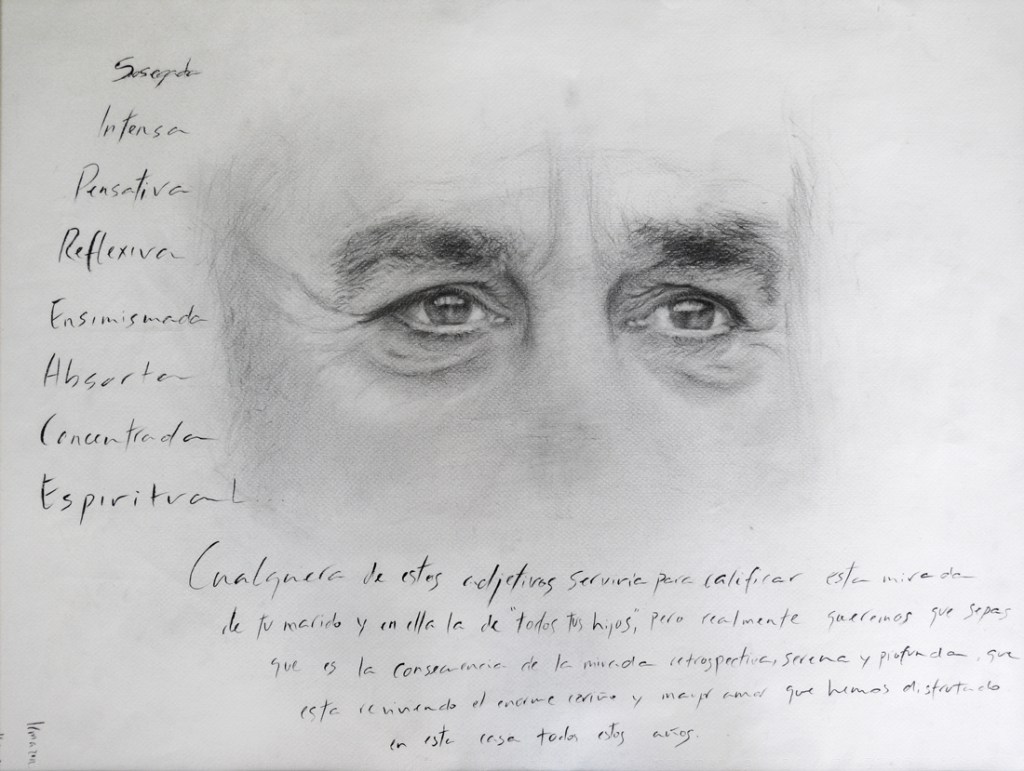 Sosegada
Intensa
Pensativa
Reflexiva
Ensimismada
Absorta
Concentrada
Espiritual
Cualquiera de estos adjetivos serviria para calificar esta mirada
de tu marido y en ella la de "todos tus hijos", pero realmente queremos que sepas
que es la consecuencia de la mirada retrospectiva, serena y profunda, que
esta reviviendo el enorme cariño y mayor amor que hemos disfrutado
en esta casa todos estos años.